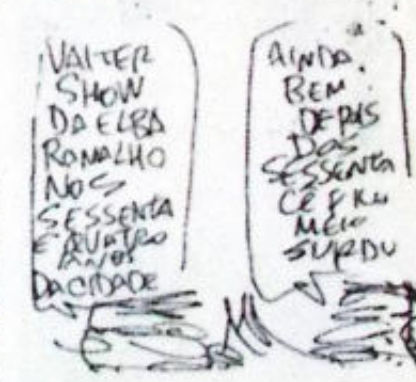 VAI TER
SHOW
DA ELBA
RAMALHO
NOS
SESSENTA
E QUATRO
ANOS
DA CIDADE
AINDA
BEM
DEPOIS
DOS
SESSENTA
CÊ FICA
MEIO
SURDU